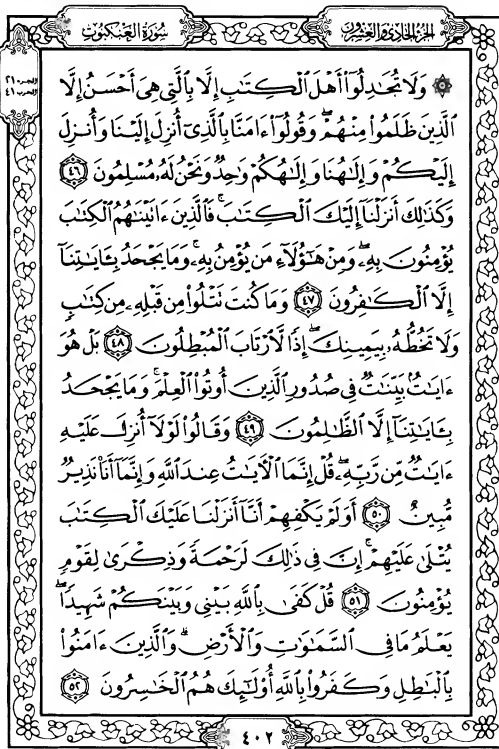 سُورَةُ العَنكَبُوت
الجزء الحادي والعشرون
الجزء ٢١
الحزب ٤١
۞ وَلَا تُجَٰدِلُوٓا۟ أَهْلَ ٱلْكِتَٰبِ إِلَّا بِٱلَّتِى هِىَ أَحْسَنُ إِلَّا
ٱلَّذِينَ ظَلَمُوا۟ مِنْهُمْ ۖ وَقُولُوٓا۟ ءَامَنَّا بِٱلَّذِىٓ أُنزِلَ إِلَيْنَا وَأُنزِلَ
إِلَيْكُمْ وَإِلَٰهُنَا وَإِلَٰهُكُمْ وَٰحِدٌ وَنَحْنُ لَهُۥ مُسْلِمُونَ ٤٦
وَكَذَٰلِكَ أَنزَلْنَآ إِلَيْكَ ٱلْكِتَٰبَ ۚ فَٱلَّذِينَ ءَاتَيْنَٰهُمُ ٱلْكِتَٰبَ
يُؤْمِنُونَ بِهِۦ ۖ وَمِنْ هَٰٓؤُلَآءِ مَن يُؤْمِنُ بِهِۦ ۚ وَمَا يَجْحَدُ بِـَٔايَٰتِنَآ
إِلَّا ٱلْكَٰفِرُونَ ٤٧ وَمَا كُنتَ تَتْلُوا۟ مِن قَبْلِهِۦ مِن كِتَٰبٍ
وَلَا تَخُطُّهُۥ بِيَمِينِكَ ۖ إِذًا لَّٱرْتَابَ ٱلْمُبْطِلُونَ ٤٨ بَلْ هُوَ
ءَايَٰتٌۢ بَيِّنَٰتٌ فِى صُدُورِ ٱلَّذِينَ أُوتُوا۟ ٱلْعِلْمَ ۚ وَمَا يَجْحَدُ
بِـَٔايَٰتِنَآ إِلَّا ٱلظَّٰلِمُونَ ٤٩ وَقَالُوا۟ لَوْلَآ أُنزِلَ عَلَيْهِ
ءَايَٰتٌ مِّن رَّبِّهِۦ ۖ قُلْ إِنَّمَا ٱلْـَٔايَٰتُ عِندَ ٱللَّهِ وَإِنَّمَآ أَنَا۠ نَذِيرٌ
مُّبِينٌ ٥٠ أَوَلَمْ يَكْفِهِمْ أَنَّآ أَنزَلْنَا عَلَيْكَ ٱلْكِتَٰبَ
يُتْلَىٰ عَلَيْهِمْ ۚ إِنَّ فِى ذَٰلِكَ لَرَحْمَةً وَذِكْرَىٰ لِقَوْمٍ
يُؤْمِنُونَ ٥١ قُلْ كَفَىٰ بِٱللَّهِ بَيْنِى وَبَيْنَكُمْ شَهِيدًا ۖ
يَعْلَمُ مَا فِى ٱلسَّمَٰوَٰتِ وَٱلْأَرْضِ ۗ وَٱلَّذِينَ ءَامَنُوا۟
بِٱلْبَٰطِلِ وَكَفَرُوا۟ بِٱللَّهِ أُو۟لَٰٓئِكَ هُمُ ٱلْخَٰسِرُونَ ٥٢
٤٠٢